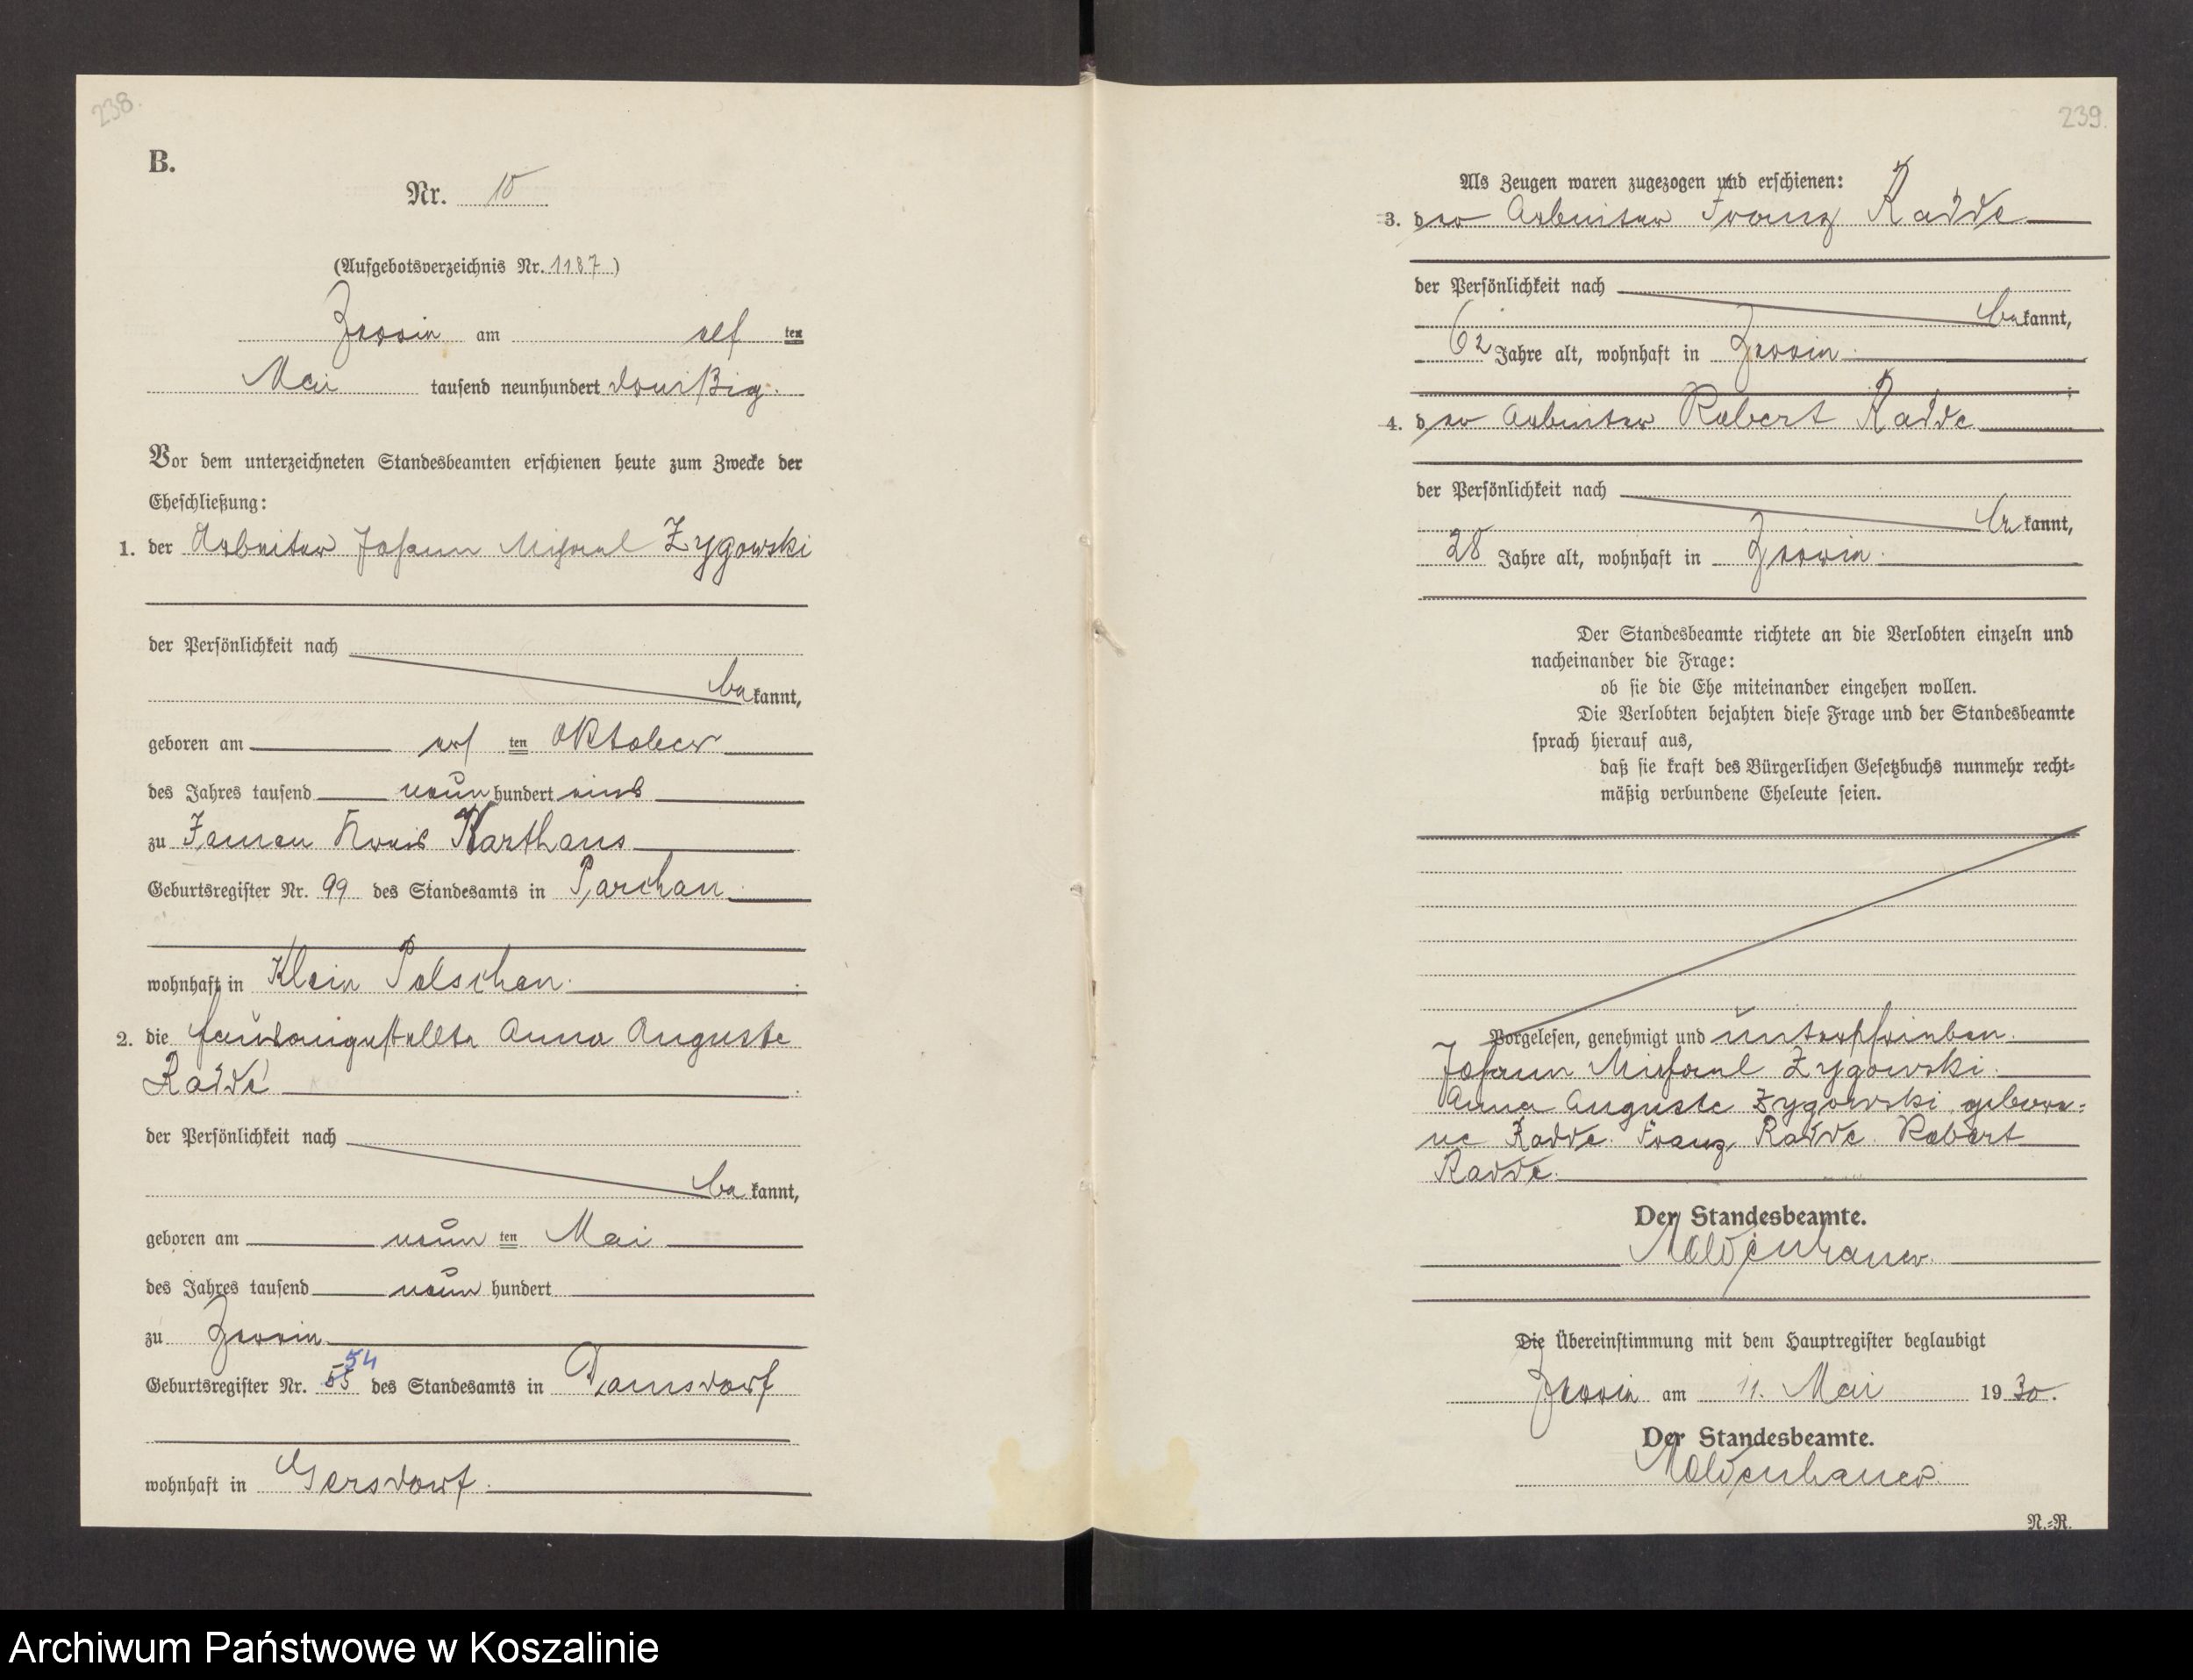 238.
B.
Nr. 10
(Aufgebotsverzeichnis Nr. 1187.)
Zerrin am elf ten
Mai tausend neunhundert dreißig.
Vor dem unterzeichneten Standesbeamten erschienen heute zum Zwecke der
Eheschließung:
1. der Arbeiter Johann Michael Zygowski
der Persönlichkeit nach
be kannt,
geboren am ten Oktober
des Jahres tausend neun hundert eins
zu Kreis Karthaus
Geburtsregister Nr. 99 des Standesamts in Parchau
wohnhaft in Klein Polschen.
2. die Hausangestellte Anna Auguste
Radde
der Persönlichkeit nach
be kannt,
geboren am neun ten Mai
des Jahres tausend neun hundert
zu Zerrin
54
Geburtsregister Nr. 55 des Standesamts in Damsdorf
wohnhaft in Gersdorf.
239.
Als Zeugen waren zugezogen und erschienen:
3. der Arbeiter Franz Radde
der Persönlichkeit nach
be kannt,
62 Jahre alt, wohnhaft in Zerrin.
4. der Arbeiter Robert Radde
der Persönlichkeit nach
be kannt,
28 Jahre alt, wohnhaft in Zerrin.
Der Standesbeamte richtete an die Verlobten einzeln und
nacheinander die Frage:
ob sie die Ehe miteinander eingehen wollen.
Die Verlobten bejahten diese Frage und der Standesbeamte
sprach hierauf aus,
daß sie kraft des Bürgerlichen Gesetzbuchs nunmehr recht-
mäßig verbundene Eheleute seien.
Vorgelesen, genehmigt und unterschrieben.
Johann Michael Zygowski.
Anna Auguste Zygowski gebore-
ne Radde. Franz Radde. Robert
Radde.
Der Standesbeamte.
Moldenhauer.
Die Übereinstimmung mit dem Hauptregister beglaubigt
Zerrin am 11. Mai 1930.
Der Standesbeamte.
Moldenhauer.
N.-R.
Archiwum Państwowe w Koszalinie